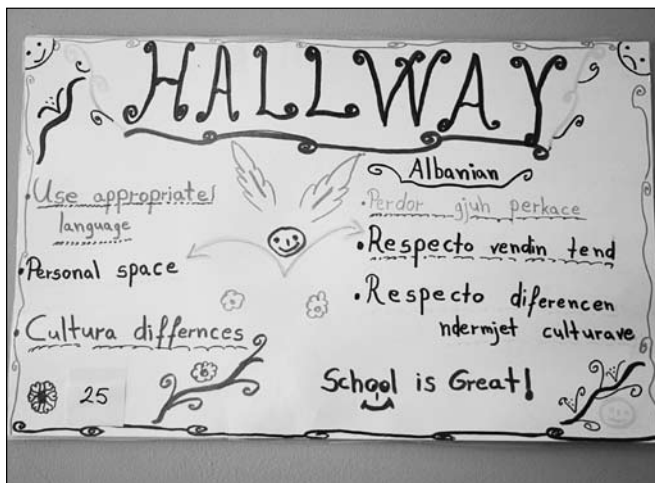 HALLWAY
Use appropriate
language
Personal space
Cultura differnces
25
Albanian
Perdor gjuh perkace
Respecto vendin tend
Respecto diferencen
ndermjet culturave
School is Great!